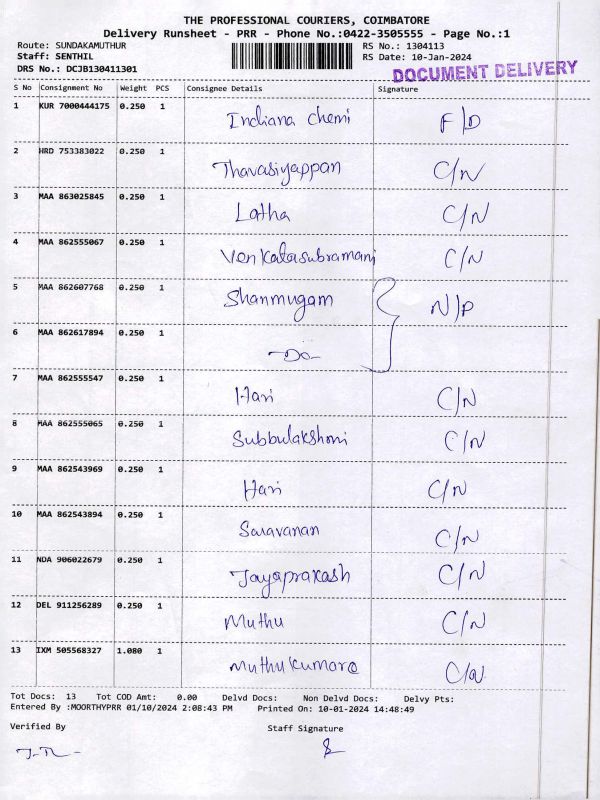 THE PROFESSIONAL COURIERS, COIMBATORE
Delivery Runsheet - PRR - Phone No.:0422-3505555 - Page No.:1
Route: SUNDAKAMUTHUR RS No.: 1304113
Staff: SENTHIL RS Date: 10-Jan-2024
DRS No.: DCJB130411301 DOCUMENT DELIVERY
S No Consignment No Weight PCS Consignee Details Signature
1 KUR 7000444175 0.250 1 Indiana chemi F/D
2 HRD 753383022 0.250 1 Thavasiyappan C/N
3 MAA 863025845 0.250 1 Latha C/N
4 MAA 862555067 0.250 1 Venkatasubramani C/N
5 MAA 862607768 0.250 1 Shanmugam N/P
6 MAA 862617894 0.250 1 -Do-
7 MAA 862555547 0.250 1 Hari C/N
8 MAA 862555065 0.250 1 Subbulakshmi C/N
9 MAA 862543969 0.250 1 Hari C/N
10 MAA 862543894 0.250 1 Saravanan C/N
11 NDA 906022679 0.250 1 Jayaprakash C/N
12 DEL 911256289 0.250 1 Muthu C/N
13 IXM 505568327 1.080 1 Muthukumara C/N
Tot Docs: 13 Tot COD Amt: 0.00 Delvd Docs: Non Delvd Docs: Delvy Pts:
Entered By :MOORTHYPRR 01/10/2024 2:08:43 PM Printed On: 10-01-2024 14:48:49
Verified By Staff Signature